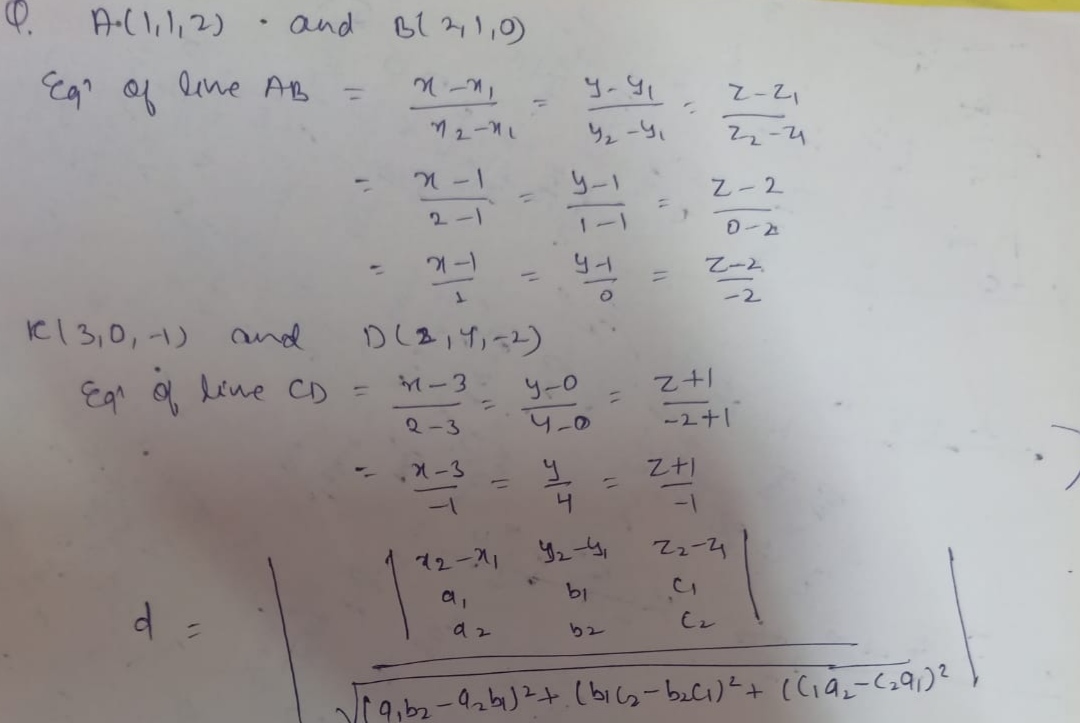 Q. A(1,1,2) · and B(2,1,0)
Eqn of line AB = x-x1/x2-x1 = y-y1/y2-y1 = z-z1/z2-z1
= x-1/2-1 = y-1/1-1 = z-2/0-2
= x-1/1 = y-1/0 = z-2/-2
(3,0,-1) and D(2,4,-2)
Eqn of line CD = x-3/2-3 = y-0/4-0 = z+1/-2+1
= x-3/-1 = y/4 = z+1/-1
x2-x1 y2-y1 z2-z1
a1 b1 c1
d = a2 b2 c2
√(a1b2-a2b1)²+(b1c2-b2c1)²+(c1a2-c2a1)²